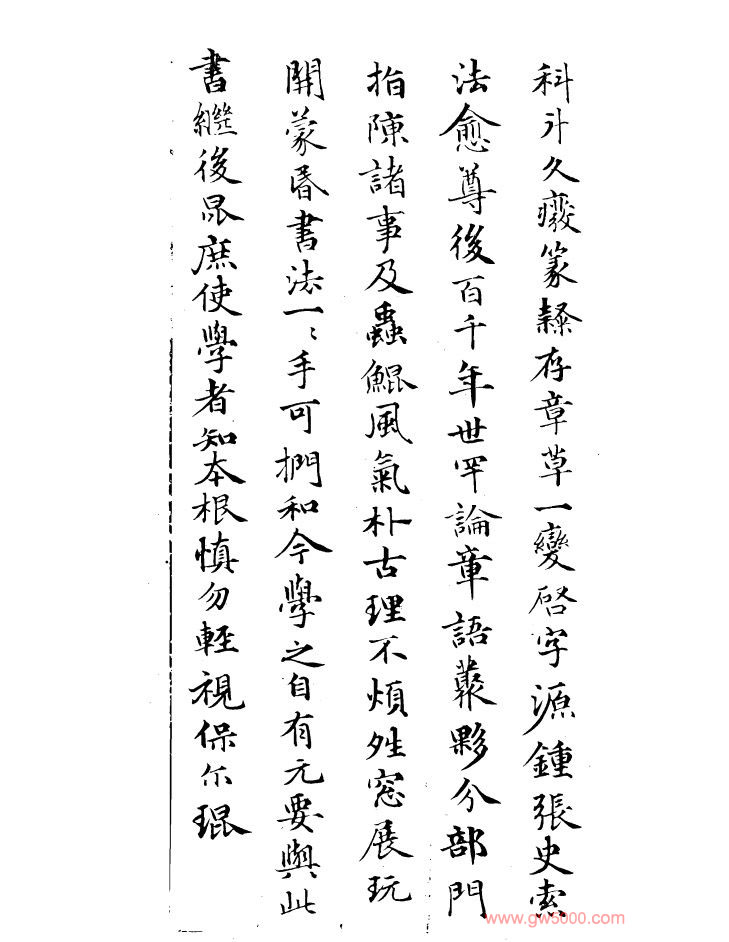 科斗久癈篆隸存章草一變啓字源鍾張史索
法愈尊後百千年世罕論章語叢夥分部門
指陳諸事及蟲鯤風氣朴古理不煩夝窓展玩
開蒙昏書法一〻手可捫和今學之自有元要與此
書繼後昆庶使學者知本根慎勿輕視保尔琨
www.gw5000.com